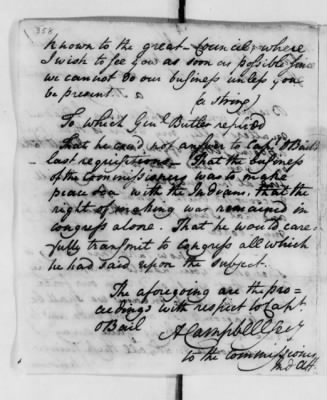 358
known to the great Council, where
I wish to see you as soon as possible since
we cannot do our business unless you
be present.
(a string)
To which Genl Butler replied
That he could not answer to Capt. OBail's
last requisitions – That the business
of the Commissioners was to make
peace with the Indians, that the
right of making war remained in
congress alone. That he would care-
fully transmit to Congress all which
he had said upon the subject.
The aforegoing are the pro-
ceedings with respect to Capt
OBail
A Campbell Secy
to the Commissioners
Ind Aff.